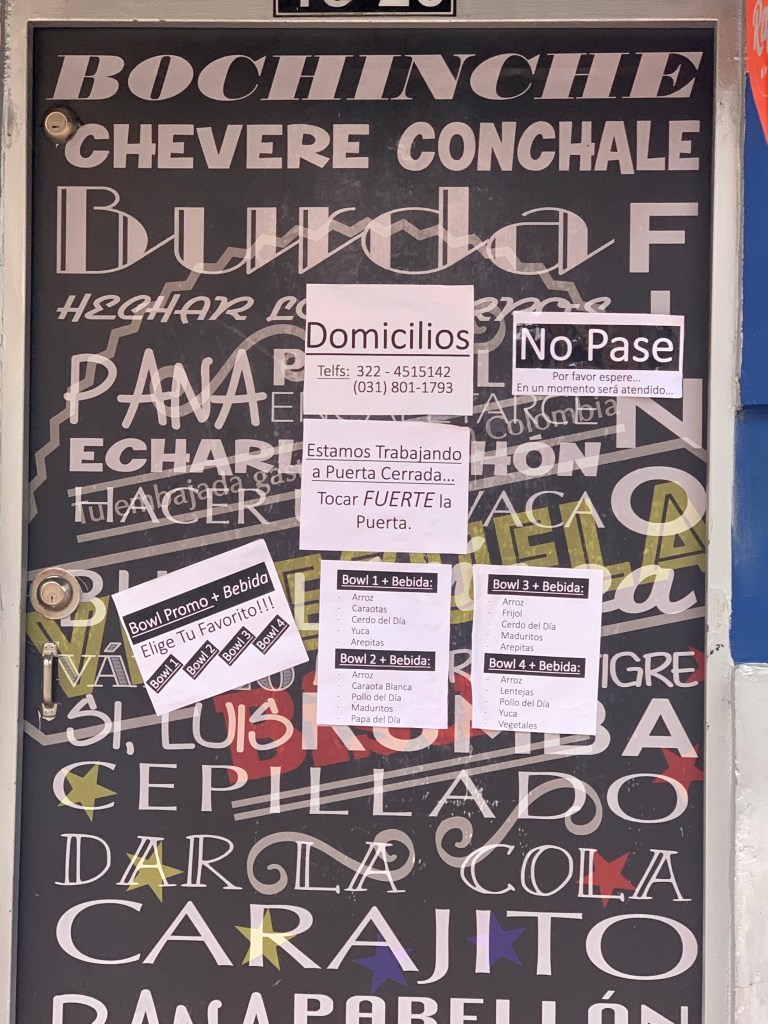 BOCHINCHE
CHEVERE CONCHALE
Burda
FINO
HECHAR
PANA
ECHARL
HÓN
HACER
VACA
Tu embajada gas
Colombia
VENEZUELA
Domicilios
Telfs: 322 - 4515142
(031) 801-1793
No Pase
Por favor espere...
En un momento será atendido...
Estamos Trabajando
a Puerta Cerrada...
Tocar FUERTE la
Puerta.
Bowl Promo + Bebida
Elige Tu Favorito!!!
Bowl 1
Bowl 2
Bowl 3
Bowl 4
Bowl 1 + Bebida:
- Arroz
- Caraotas
- Cerdo del Día
- Yuca
- Arepitas
Bowl 2 + Bebida:
- Arroz
- Caraota Blanca
- Pollo del Día
- Maduritos
- Papa del Día
Bowl 3 + Bebida:
- Arroz
- Frijol
- Cerdo del Día
- Maduritos
- Arepitas
Bowl 4 + Bebida:
- Arroz
- Lentejas
- Pollo del Día
- Yuca
- Vegetales
TIGRE
SI, LUIS RUMBA
CEPILLADO
DAR LA COLA
CARAJITO
PANA PABELLÓN